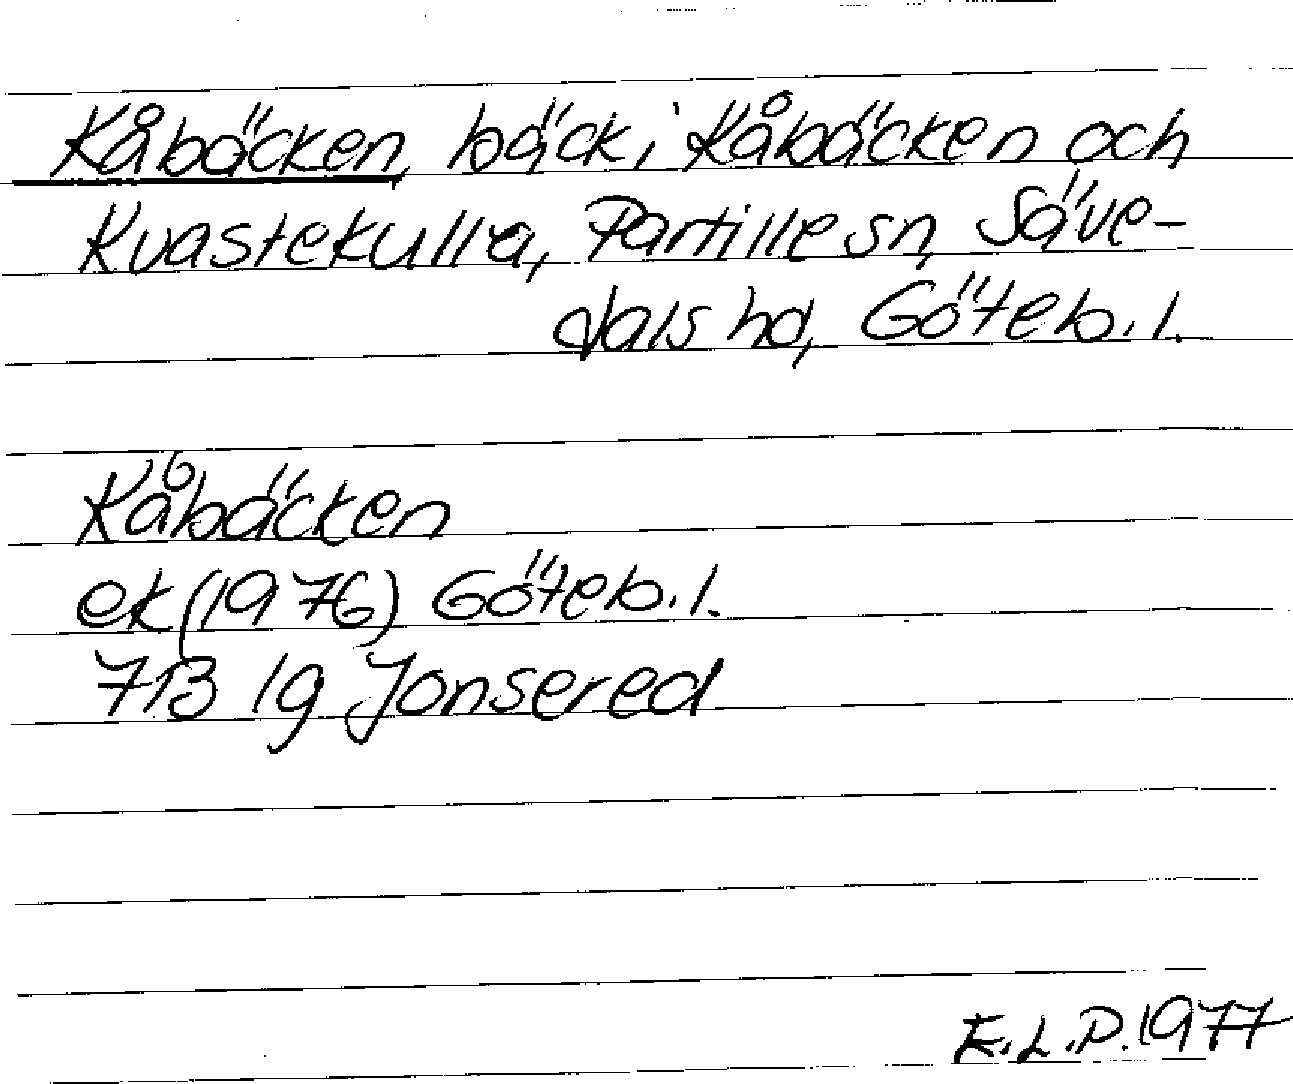 Kåbäcken, bäck, i Kåbäcken och
Kvastekulla, Partille sn, Säve-
dals hd, Göteb. l.
Kåbäcken
ek (1976) Göteb. l.
7B 1g Jonsered
E.L.P. 1977